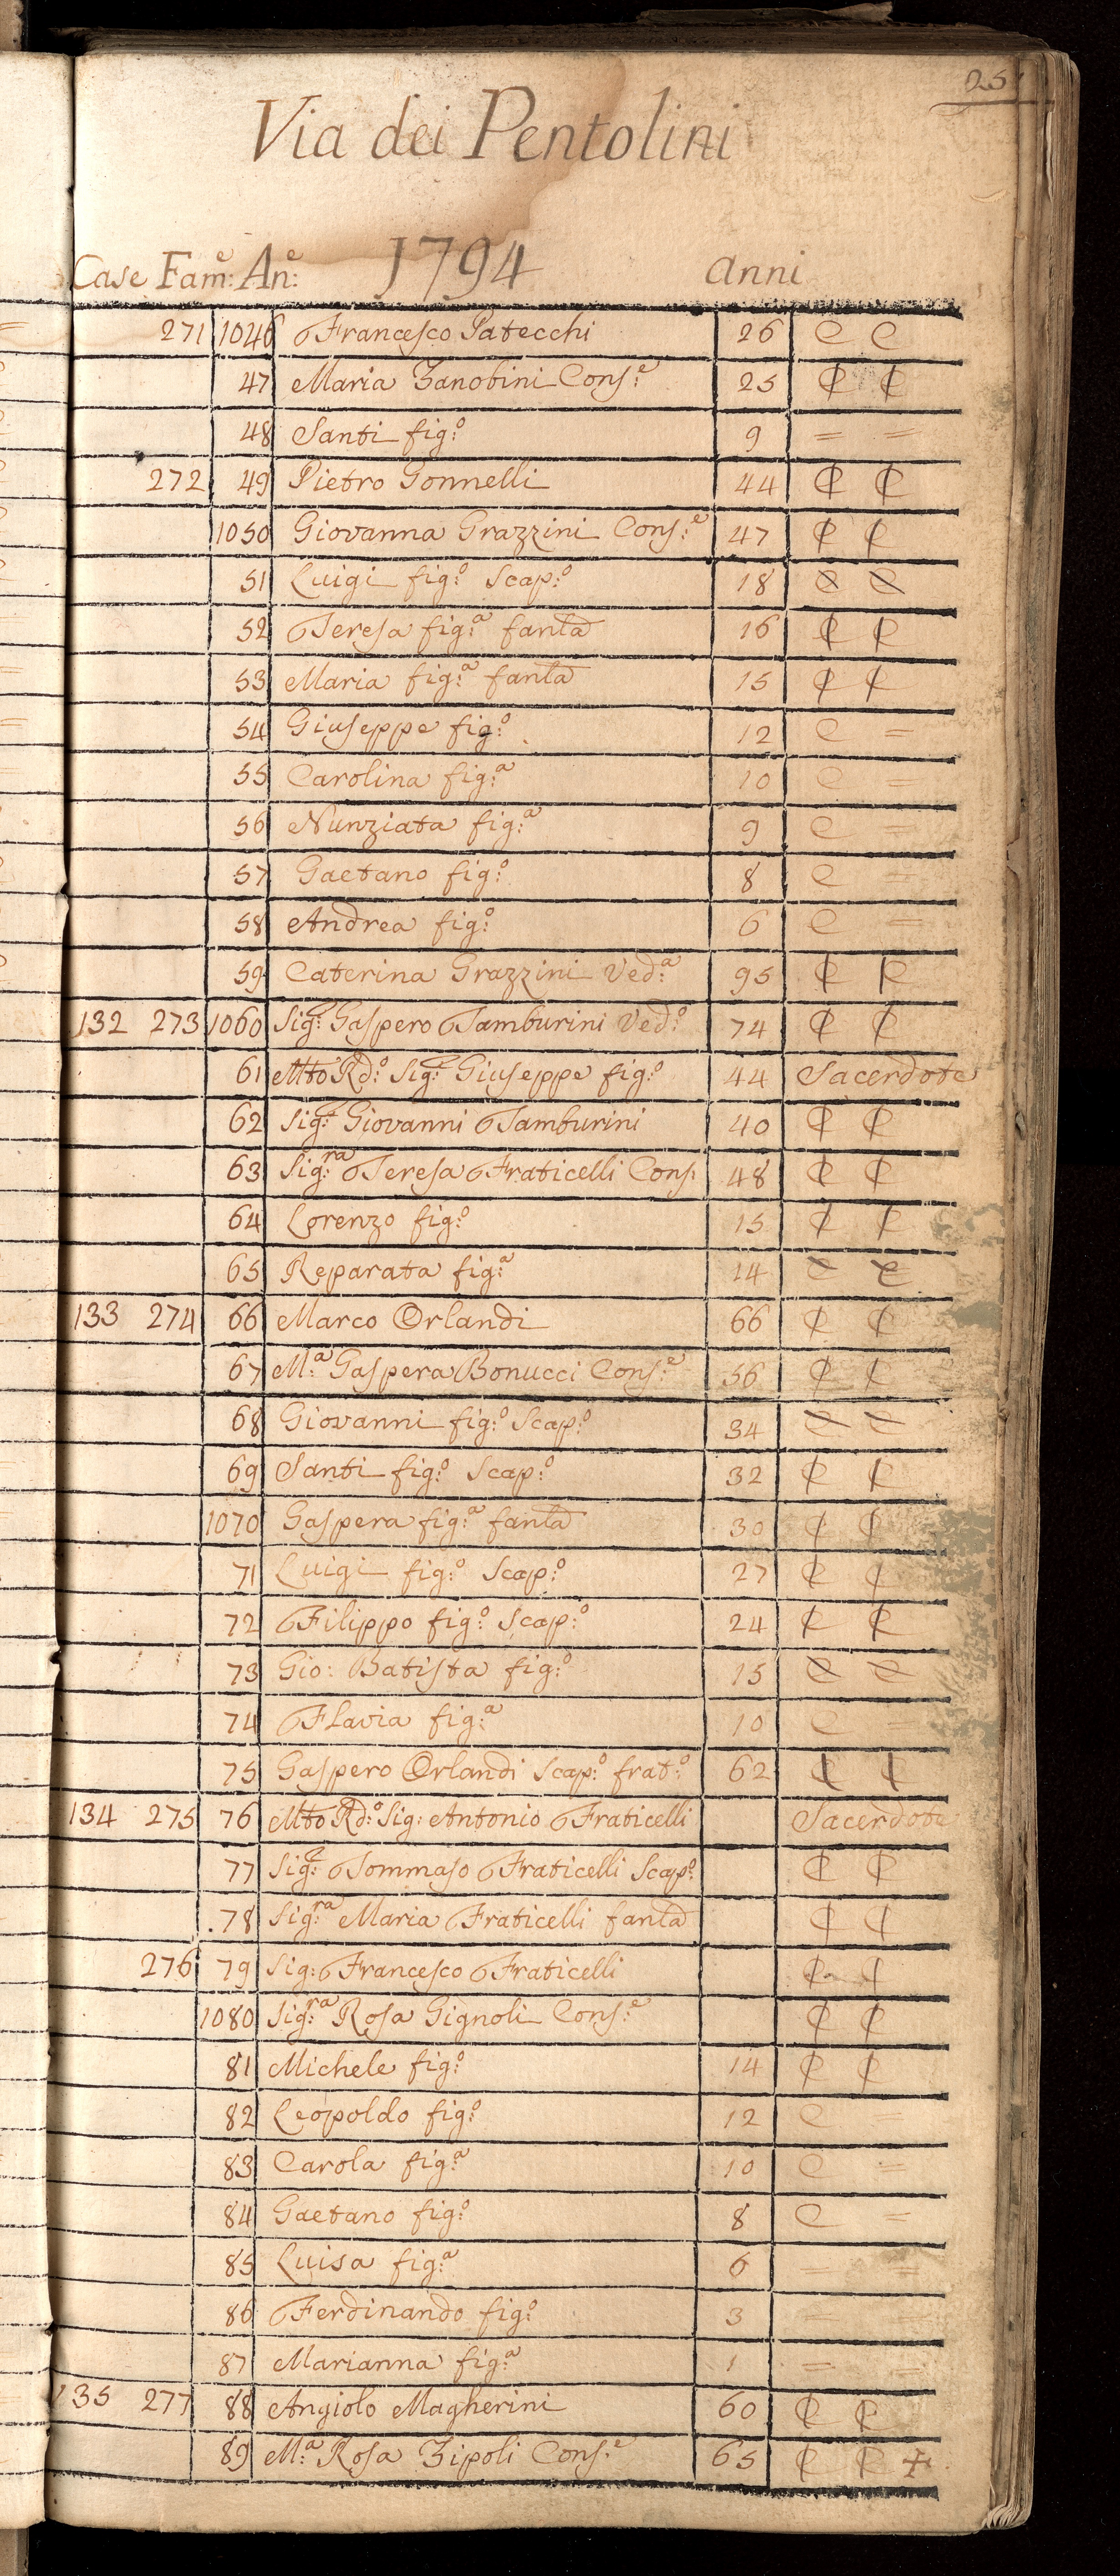 251
Via dei Pentolini
Case Fam:e An:e 1794 anni
271 1046 Francesco Patecchi 26 C C
47 Maria Zanobini Cons:e 25 C C
48 Santi fig:o 9 = =
272 49 Pietro Gonnelli 44 C C
1050 Giovanna Grazzini Cons:e 47 C C
51 Luigi fig:o Scap:o 18 C C
52 Teresa fig:a fanla 16 C C
53 Maria fig:a fanla 15 C C
54 Giuseppe fig:o 12 C =
55 Carolina fig:a 10 C =
56 Nunziata fig:a 9 C =
57 Gaetano fig:o 8 C =
58 Andrea fig:o 6 C =
59 Caterina Grazzini Ved:a 95 C C
132 273 1060 Sig:e Gaspero Tamburini Ved:o 74 C C
61 Mto Rd:o Sig:e Giuseppe fig:o 44 Sacerdote
62 Sig:e Giovanni Tamburini 40 C C
63 Sig:ra Teresa Fraticelli Cons: 48 C C
64 Lorenzo fig:o 15 C C
65 Reparata fig:a 14 C C
133 274 66 Marco Orlandi 66 C C
67 M:a Gaspera Bonucci Cons:e 56 C C
68 Giovanni fig:o Scap:o 34 C C
69 Santi fig:o Scap:o 32 C C
1070 Gaspera fig:a fanla 30 C C
71 Luigi fig:o Scap:o 27 C C
72 Filippo fig:o Scap:o 24 C C
73 Gio: Batista fig:o 15 C C
74 Flavia fig:a 10 C =
75 Gaspero Orlandi Scap:o frat:o 62 C C
134 275 76 Mto Rd:o Sig: Antonio Fraticelli Sacerdote
77 Sig:e Tommaso Fraticelli Scap:o C C
78 Sig:ra Maria Fraticelli fanla C C
276 79 Sig: Francesco Fraticelli C C
1080 Sig:ra Rosa Gignoli Cons:e C C
81 Michele fig:o 14 C C
82 Leopoldo fig:o 12 C
83 Carola fig:a 10 C =
84 Gaetano fig:o 8 C =
85 Luisa fig:a 6 = =
86 Ferdinando fig:o 3 =
87 Marianna fig:a 1 =
135 277 88 Angiolo Magherini 60 C C
89 M:a Rosa Zipoli Cons:e 65 C C +